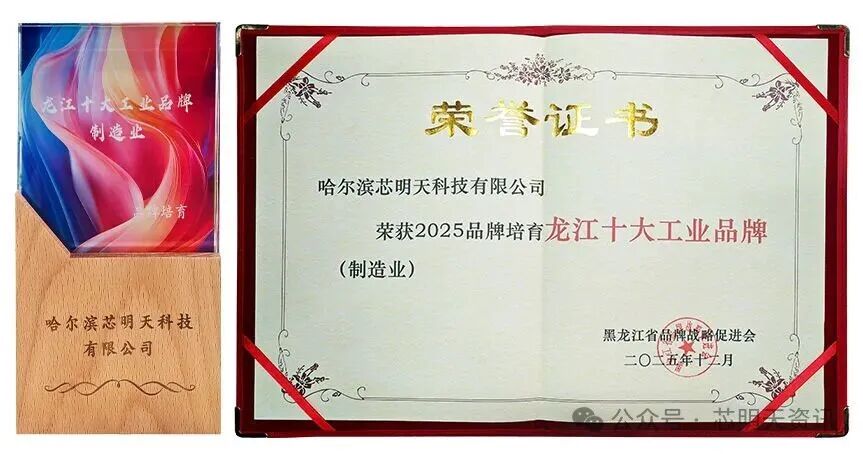 龙江十大工业品牌
制造业
品牌培育
哈尔滨芯明天科技
有限公司
荣誉证书
哈尔滨芯明天科技有限公司
荣获2025品牌培育龙江十大工业品牌
(制造业)
黑龙江省品牌战略促进会
二〇二五年十二月
公众号·芯明天资讯